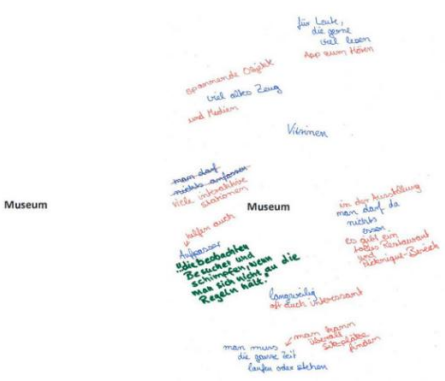 für Leute,
die gerne
viel lesen
App zum Hören
spannende Objekte
viel altes Zeug
und Medien
Vitrinen
man darf
nichts anfassen
viele interaktive
Stationen
Museum
Museum
helfen auch
Aufpasser
"die beobachten
Besucher und
schimpfen, wenn
man sich nicht an die
Regeln hält."
in der Ausstellung
man darf da
nichts
essen
es gibt ein
tolles Restaurant
und
Picknick-Bereich
langweilig
oft auch interessant
man muss
die ganze Zeit
laufen oder stehen
man kann
überall
Sitzplätze
finden